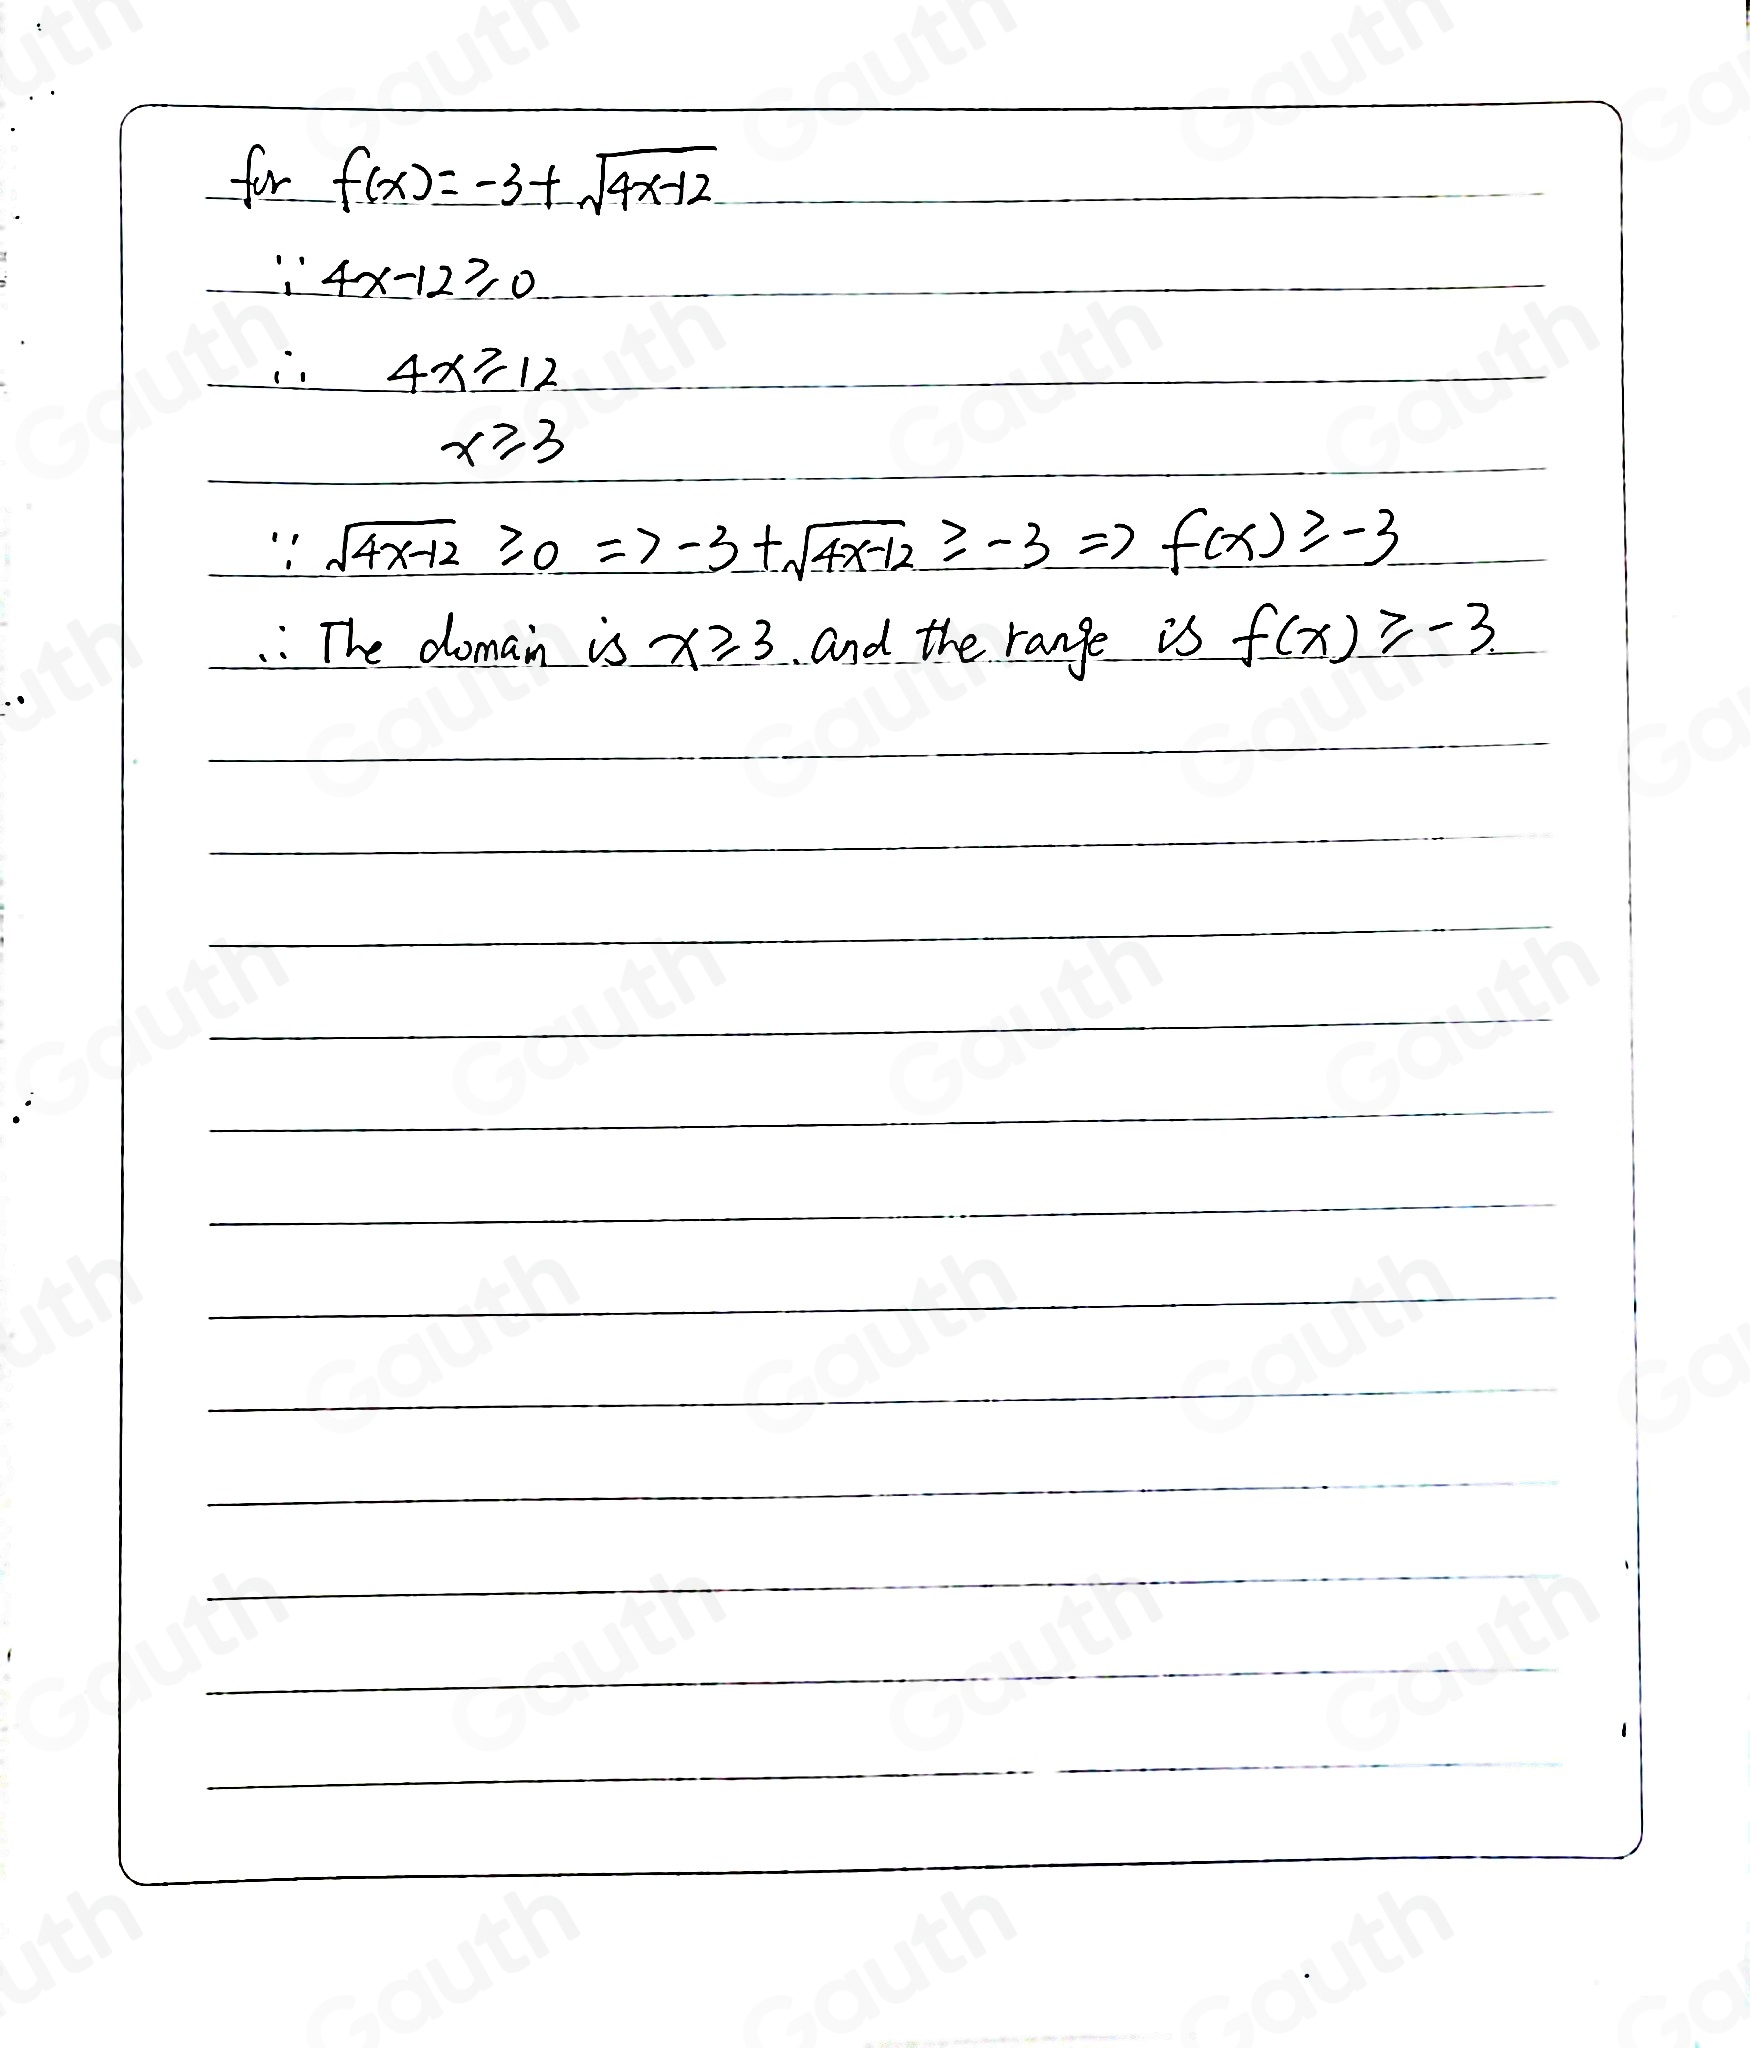 for f(x)=-3+√(4x-12)
∵ 4x-12≥0
∴ 4x≥12
x≥3
∵ √(4x-12) ≥0 => -3+√(4x-12) ≥ -3 => f(x)≥-3
∴ The domain is x≥3. and the range is f(x)≥-3.